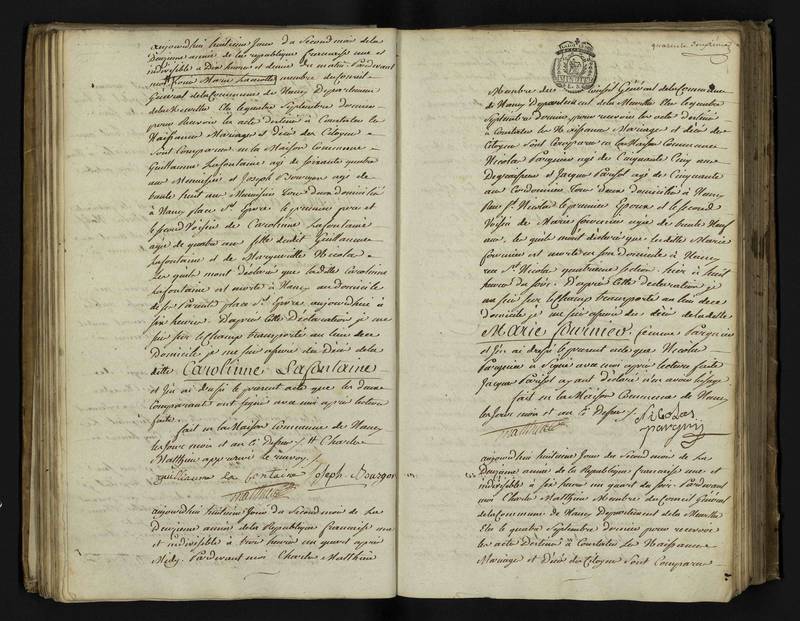 aujourdhui huitieme Jour du Second mois de la
Deuzieme année de la republique francaise une et
indivisible a Dix heures et demie du matin Pardevant
moi membre du Conseil
Général de la Commune de Nancy Departement
de la Meurthe Elu le quatre Septembre dernier
pour recevoir les acte destiné à Constater les
Naissance Mariage et décès des Citoyens
Sont Comparu en la Maison Commune
Guillaume Lafontaine agé de soixante quatre
ans Menuisier et Joseph Bourgon agé de
trente huit ans Menuisier tous deux domicilié
à Nancy place St. Epvre le premier pere et
le second Voisin de Carolinne Lafontaine
agée de quatre ans fille dudit Guillaume
Lafontaine et de Marguerite Nicolas
les quels mont déclaré que ladite Carolinne
Lafontaine est morte à Nancy au domicile
de ses Parents place St. Epvre aujourdhui à
six heures D'apres cette Déclaration je me
suis sur le Champ transporté au lieu de ce
Domicile je me suis assuré du décès de la
ditte Carolinne Lafontaine
et j'en ai dressé le present acte que les deux
Comparant ont signé avec moi après lecture
faite.
fait en la Maison Commune de Nancy
les Jour mois et an ci dessus Charles
Matthieu approuvé le renvoy
guillaume La fontaine Joseph Bourgon
Matthieu
aujourdhui huitieme Jour du Second mois de La
Deuzieme année de la Republique francaise une
et indivisible à trois heures un quart après
Midy. Pardevant moi Charle Matthieu
Membre du Conseil Général de la Commune
de Nancy Departement de la Meurthe Elu le quatre
Septembre dernier pour recevoir les acte destiné
a Constater les Naissance Mariage et décès des
Citoyens Sont Comparu en la Maison Commune
Nicolas agé de Cinquante Cinq ans
et Jacque Parisot agé de Cinquante
ans Cordonnier tous deux Domicilié à Nancy
Rue St. Nicolas le premier Epoux et le second
Voisin de Marie agée de trente Neuf
ans, les quels m'ont déclaré que ladite Marie
est morte en son domicile à Nancy
rue St. Nicolas quatrieme section hier à huit
heures du soir. D'après cette déclaration je
me suis sur le Champ transporté au lieu de ce
domicile je me suis assuré du décès de ladite
Marie femme
et j'en ai dressé le present acte que Nicolas
a signé avec moi après lecture faite
Jacque Parisot ayant déclaré n'en avoir l'usage
fait en la Maison Commune de Nancy
les Jour mois et an ci Dessus
Nicolas
Matthieu
aujourdhui huitieme Jour du Second mois de La
Deuzieme année de la Republique francaise une et
indivisible à six heures un quart du soir. Pardevant
moi Charle Matthieu Membre du Conseil Général
de la Commune de Nancy Departement de la Meurthe
Elu le quatre Septembre dernier pour recevoir
les acte Destiné à Constater les Naissance
Mariage et Décès des Citoyens Sont Comparu